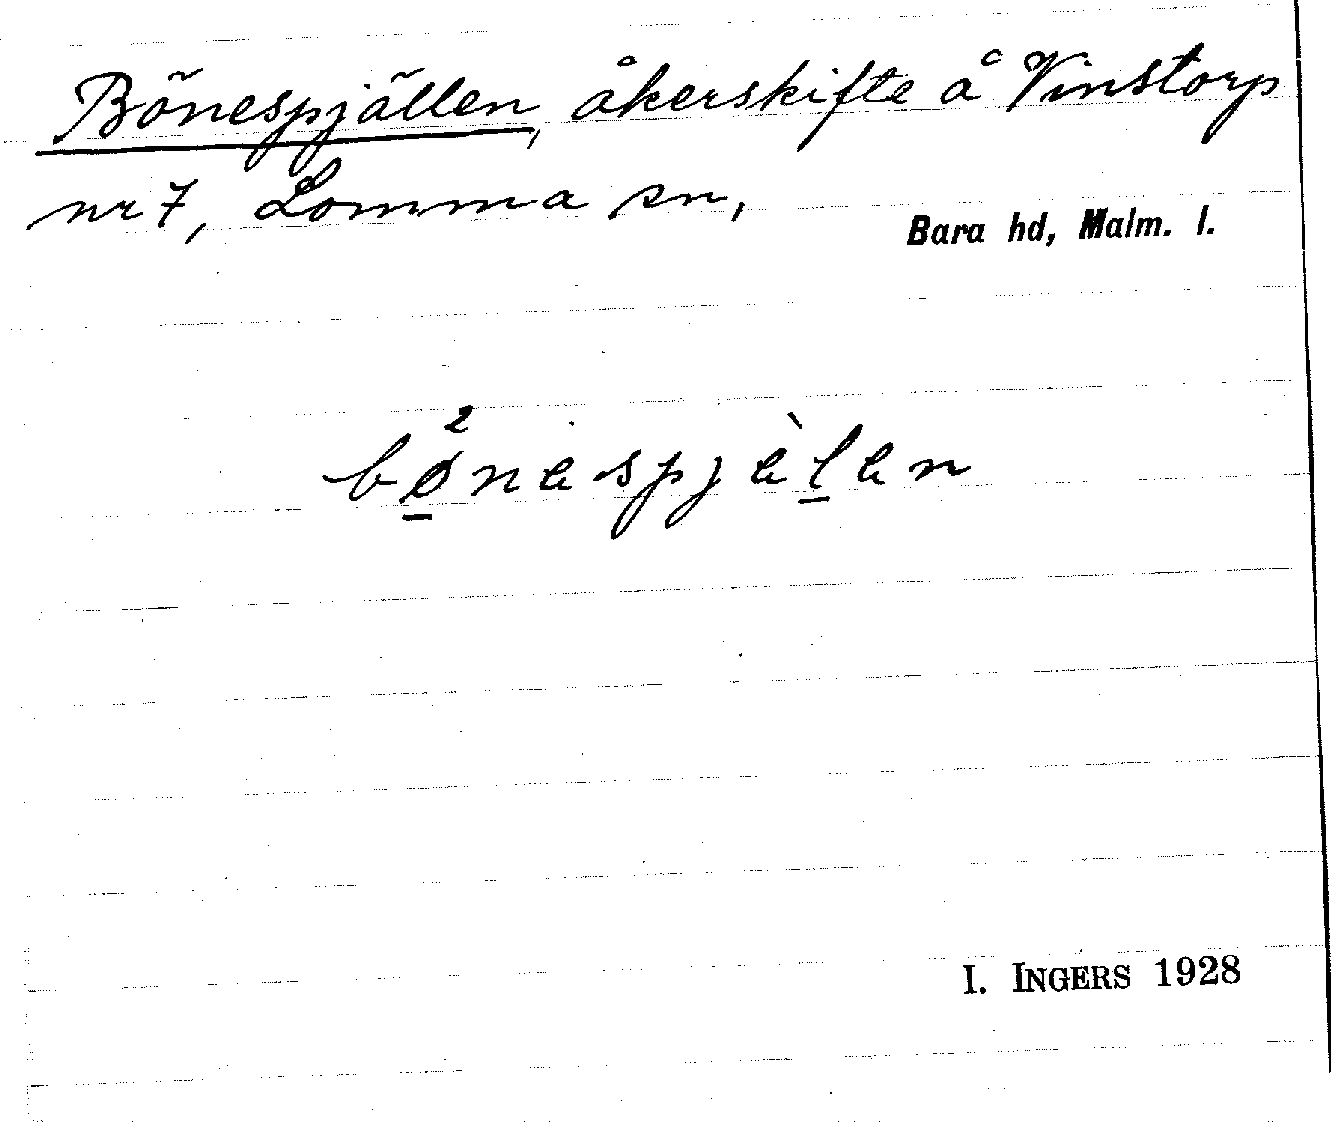 Bönespjällen, åkerskifte å Vinstorp
nr 7, Lomma sn,
Bara hd, Malm. l.
bø̠²nespjèl̠en
I. INGERS 1928